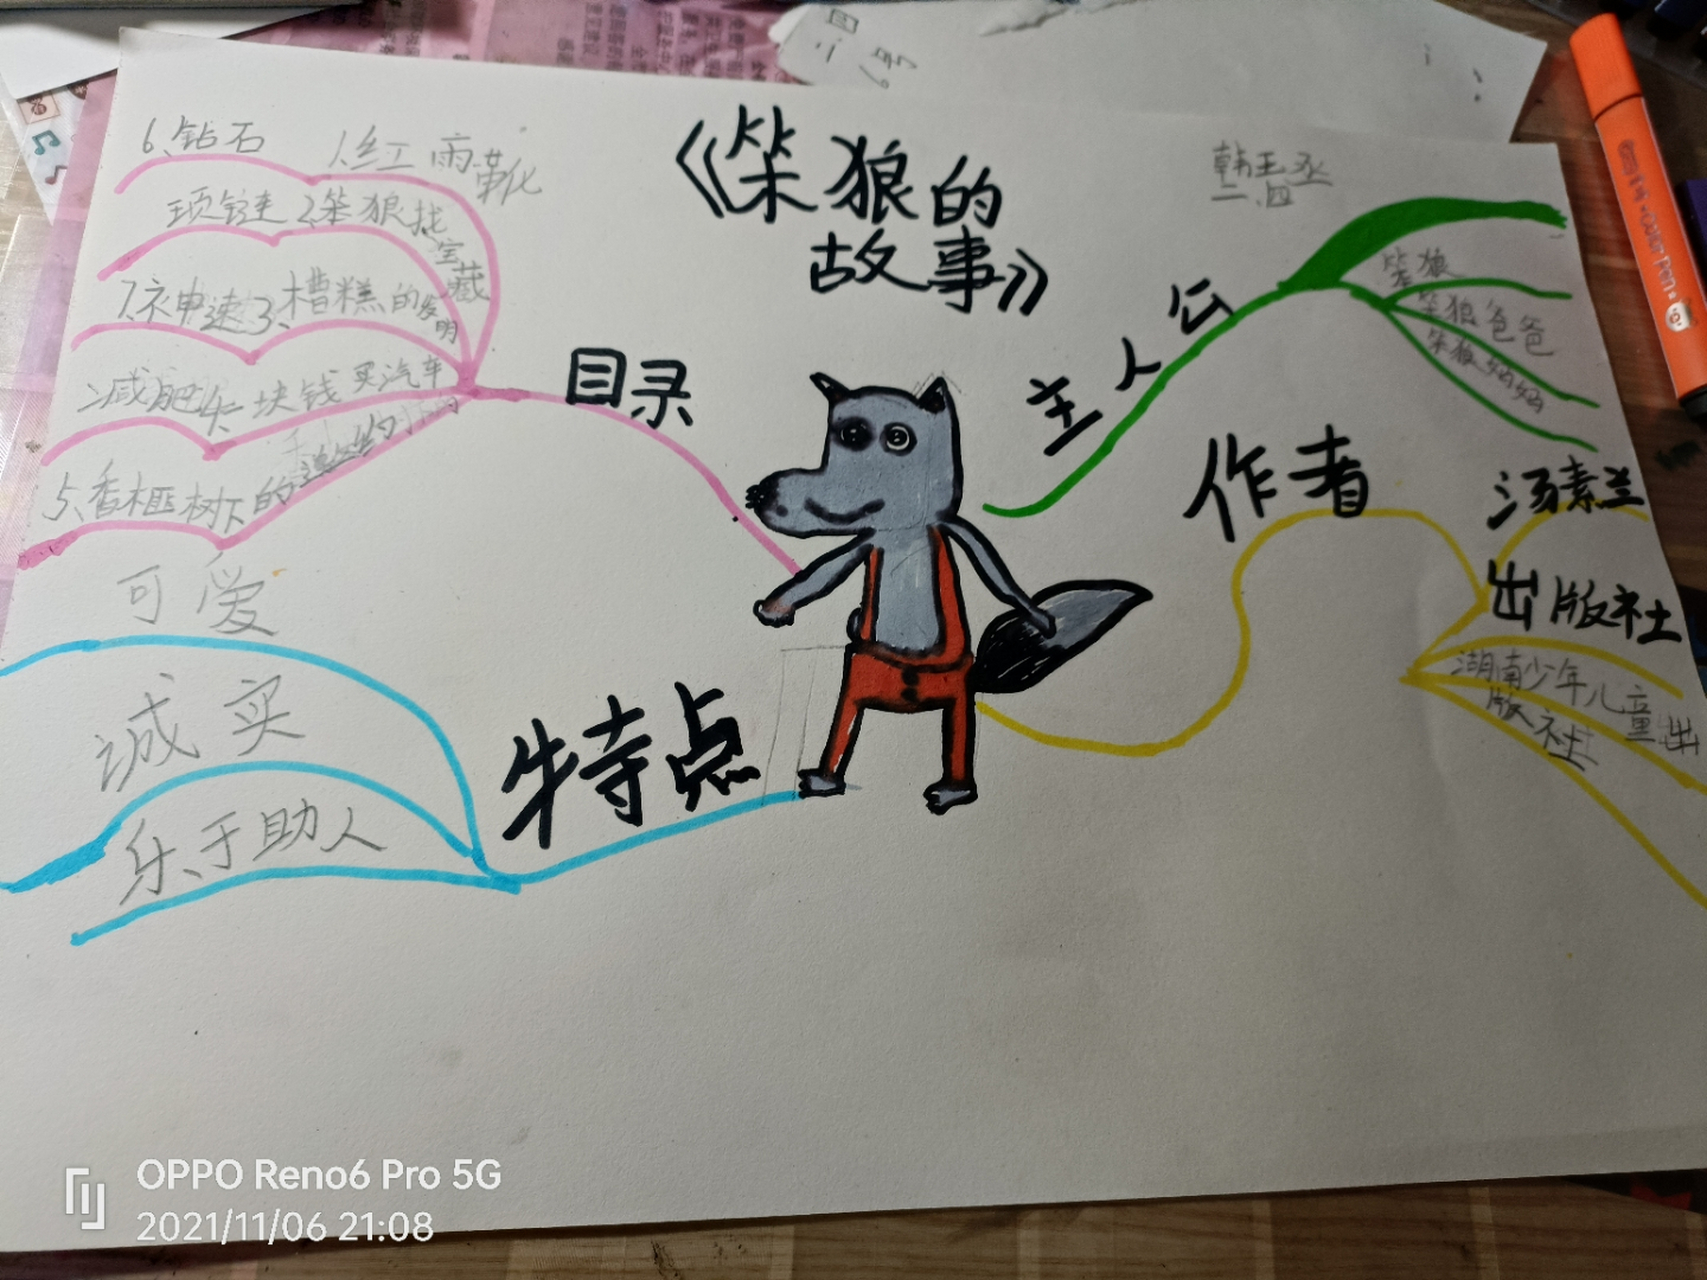 二.四
6号
《笨狼的
故事》
韩玉丞
二.四
目录
1.红雨靴
2.笨狼找宝藏
3.槽糕的发明
4.一块钱买汽车
5.香榧树下的
6.钻石
项链
7.神速
减肥
主人公
笨狼
笨狼爸爸
笨狼妈妈
作者
汤素兰
出版社
湖南少年儿童出
版社
特点
可爱
诚实
乐于助人
OPPO Reno6 Pro 5G
2021/11/06 21:08